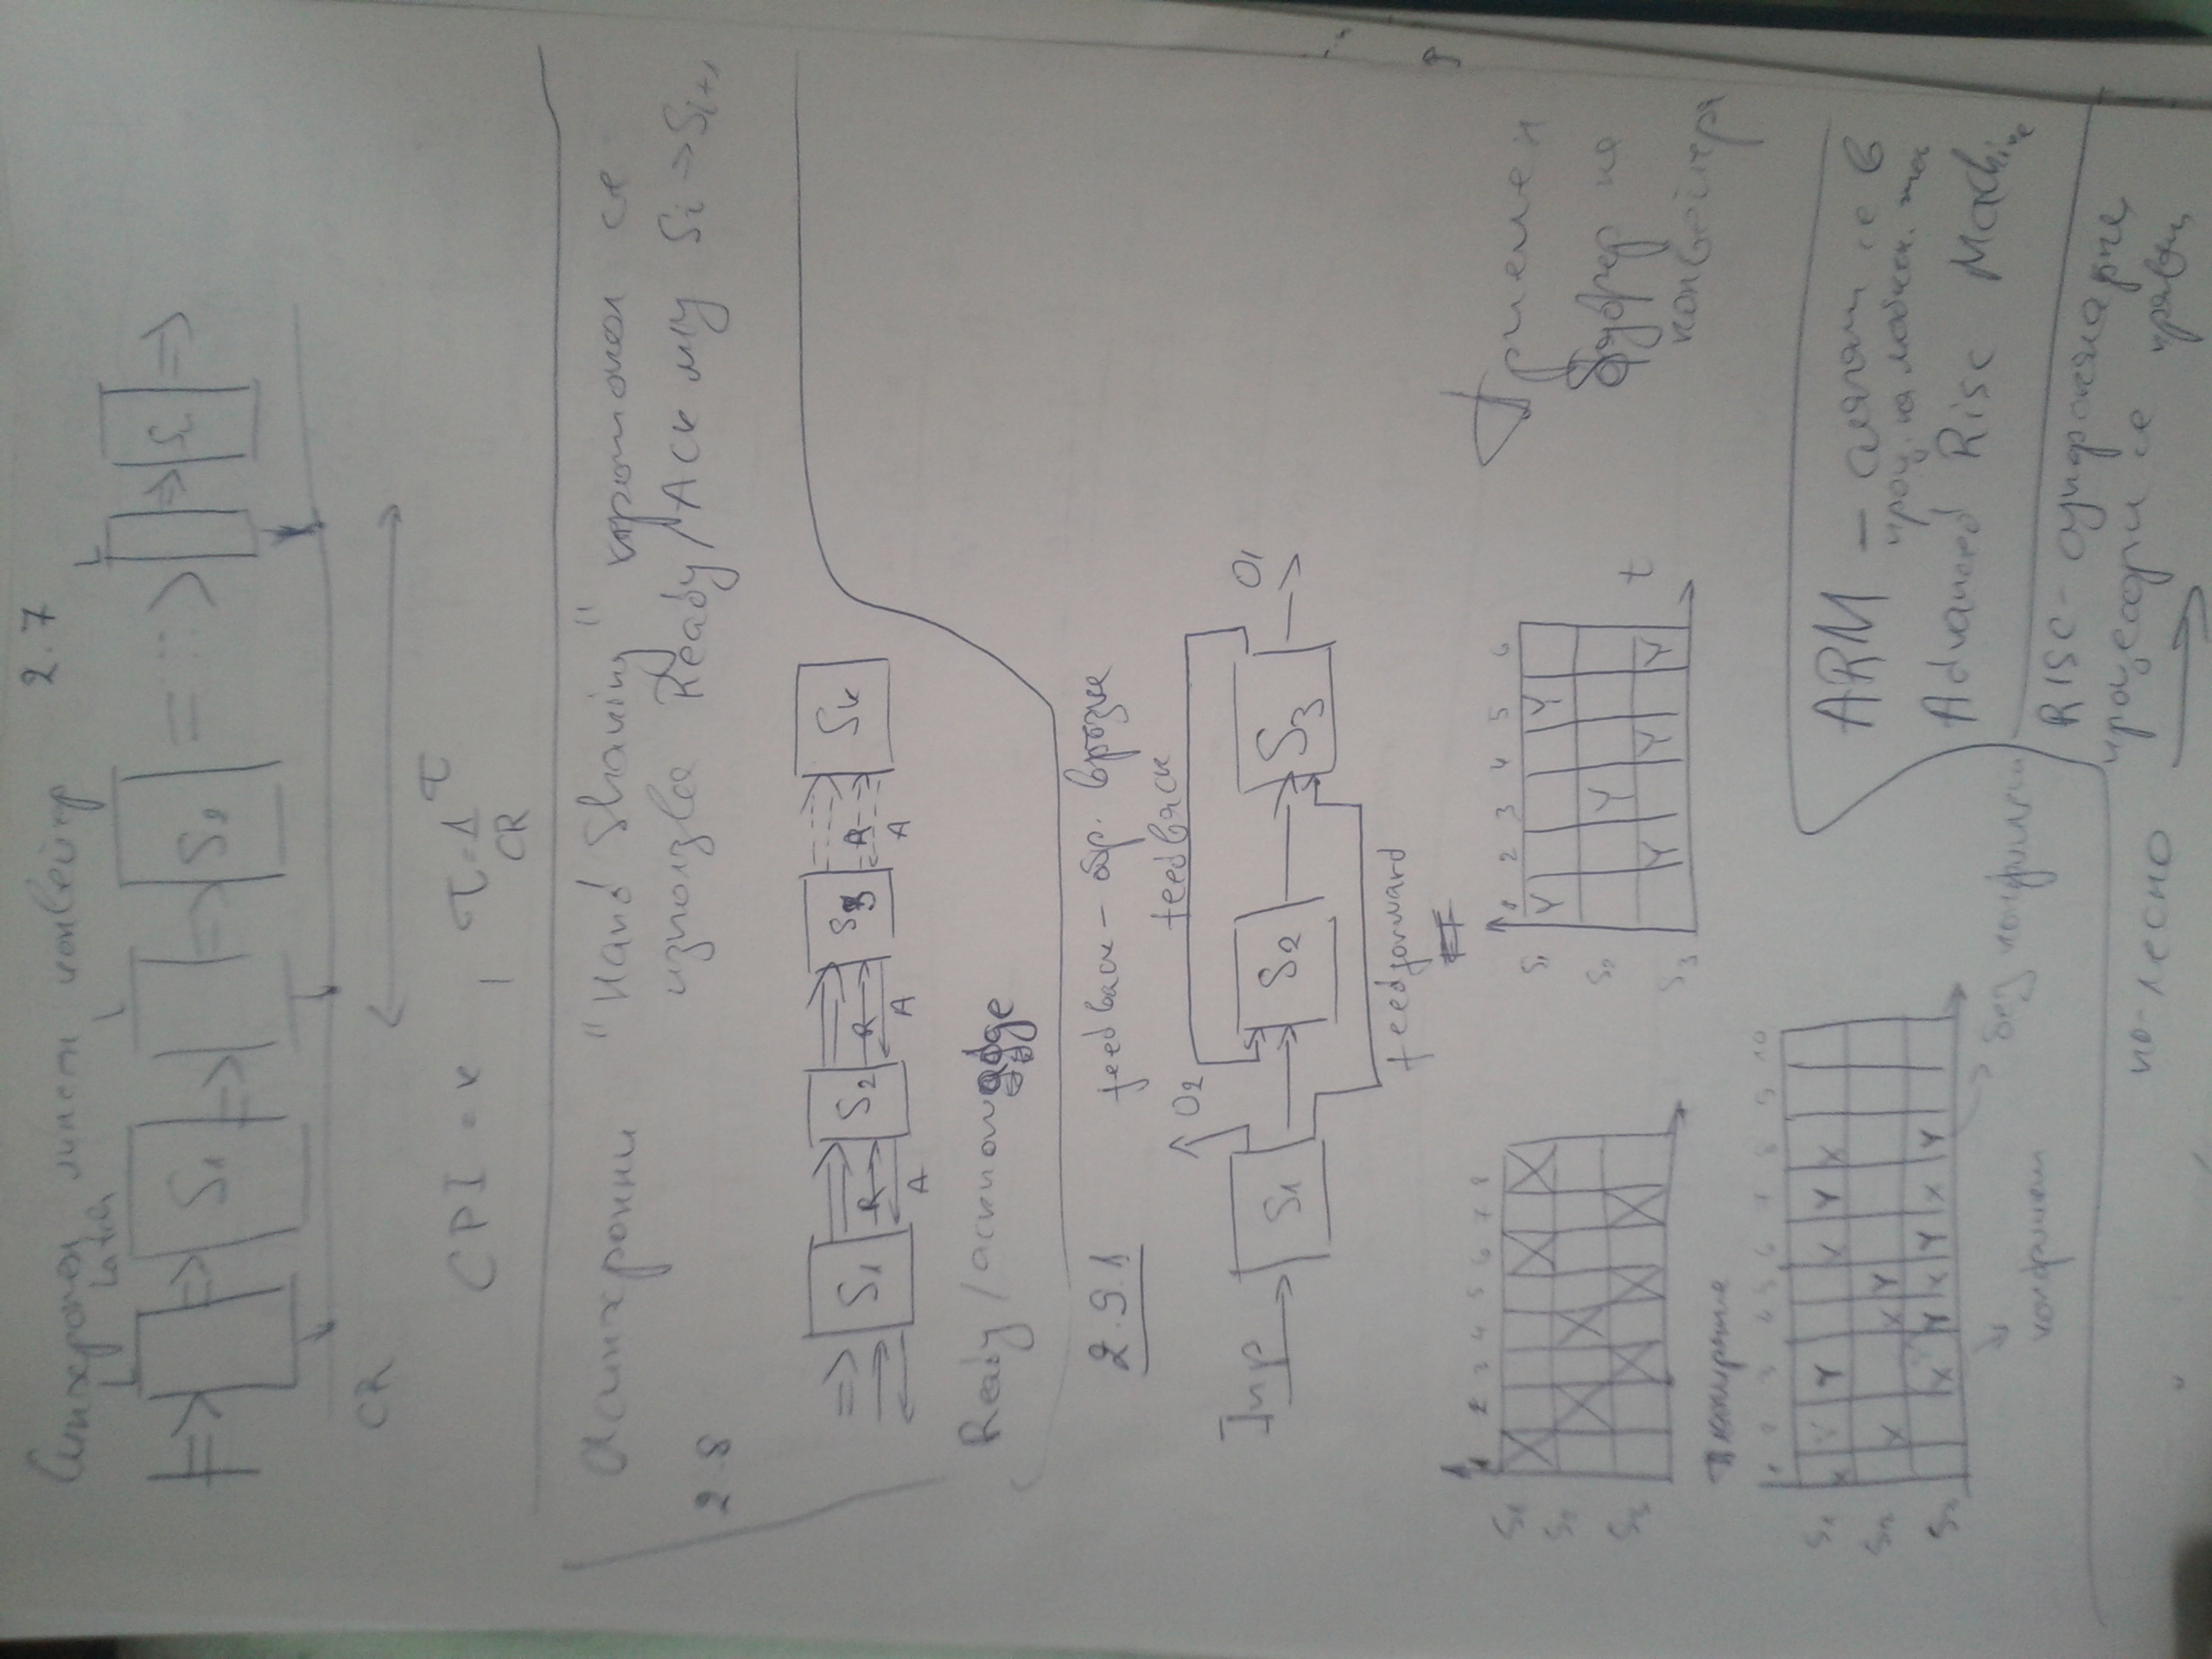 Синхронен линеен конвейер 2.7
L Latch L L
S1 S2 Si
CR
τ
CPI = k , τ = 1
CR
Асинхронни "Hand Shaking" протокол се
използва Ready/Ack м/у Si → Si+1
2.8
S1 S2 S3 Sk
R R R
A A A
Ready / acknowledge
2.9.1 feedback – обр. връзка
feedback
O2
Inp S1 S2 S3 O1
feedforward
1 2 3 4 5 6 7 8
S1
S2
S3
1 2 3 4 5 6
S1 Y Y
S2 Y
S3 Y Y Y
t
Приемен
буфер на
конвейера
1 2 3 4 5 6 7 8 9 10
S1 X Y Y X Y X
S2 X X Y
S3 X Y X Y X Y
конфликт
без конфликт
ARM – слагат се в
проц. на мобилн.
Advanced Risc Machine
RISC –
процесори се правят
по-лесно